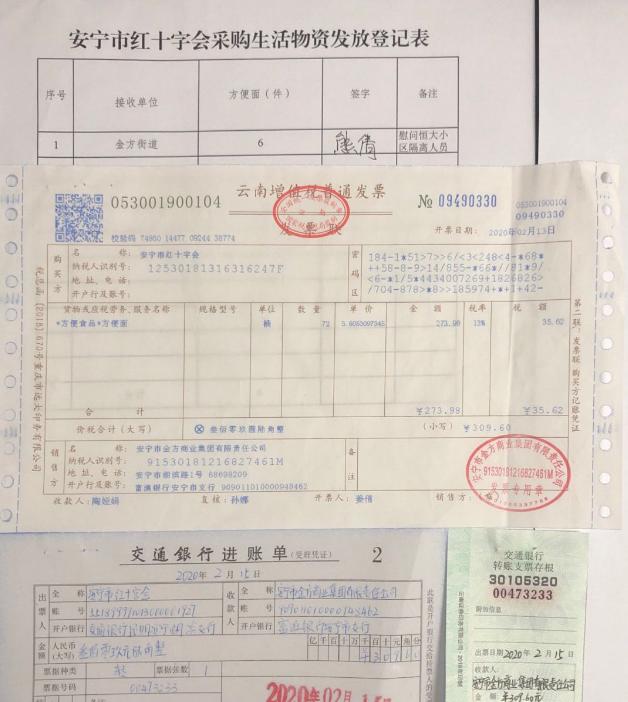 安宁市红十字会采购生活物资发放登记表
序号 接收单位 方便面（件） 签字 备注
1 金方街道 6 慰问恒大小
区隔离人员
053001900104 云南增值税普通发票 № 09490330 053001900104
09490330
发票联 开票日期： 2020年02月13日
校验码 74950 14477 09244 38774
购买方 名称： 安宁市红十字会
纳税人识别号： 12530181316316247F
地址、电话：
开户行及账号：
密码区
184-1*51>7>>6/<3<248<4-*68*
++58-8-9>14/855-*66*//81*9/
<6-*1/5*4434007269+1826826/
/704-878>*8>>185974+*+1+42-
货物或应税劳务、服务名称 规格型号 单位 数量 单价 金额 税率 税额
*方便食品*方便面 桶 72 273.98 13% 35.62
合计 ¥273.98 ¥35.62
价税合计（大写） ⊗ 叁佰零玖圆陆角整 （小写） ¥309.60
销售方 名称： 安宁市金方商业集团有限责任公司
纳税人识别号： 91530181216827461M
地址、电话： 68698209
开户行及账号： 富滇银行安宁市支行 9090110100009484​62
备注
收款人： 陶娅娟 复核： 孙娜 开票人： 姜倩 销售方：
安宁市金方商业集团有限责任公司
91530181216827461M
发票专用章
第二联：发票联 购买方记账凭证
交通银行进账单（受理凭证） 2
2020年2月15日
出票人 全称 安宁市红十字会 收款人 全称 安宁市金方商业集团有限责任公司
账号 账号
开户银行 开户银行 富滇银行安宁市支行
金额 人民币（大写） 叁佰零玖元陆角整 亿千百十万千百十元角分
票据种类 票据张数 1
票据号码 00473233
2020年02月
交通银行
转账支票存根
30105320
00473233
附加信息
出票日期 2020年2月15日
收款人：
安宁市金方商业集团有限责任公司
金额： ¥309.60元